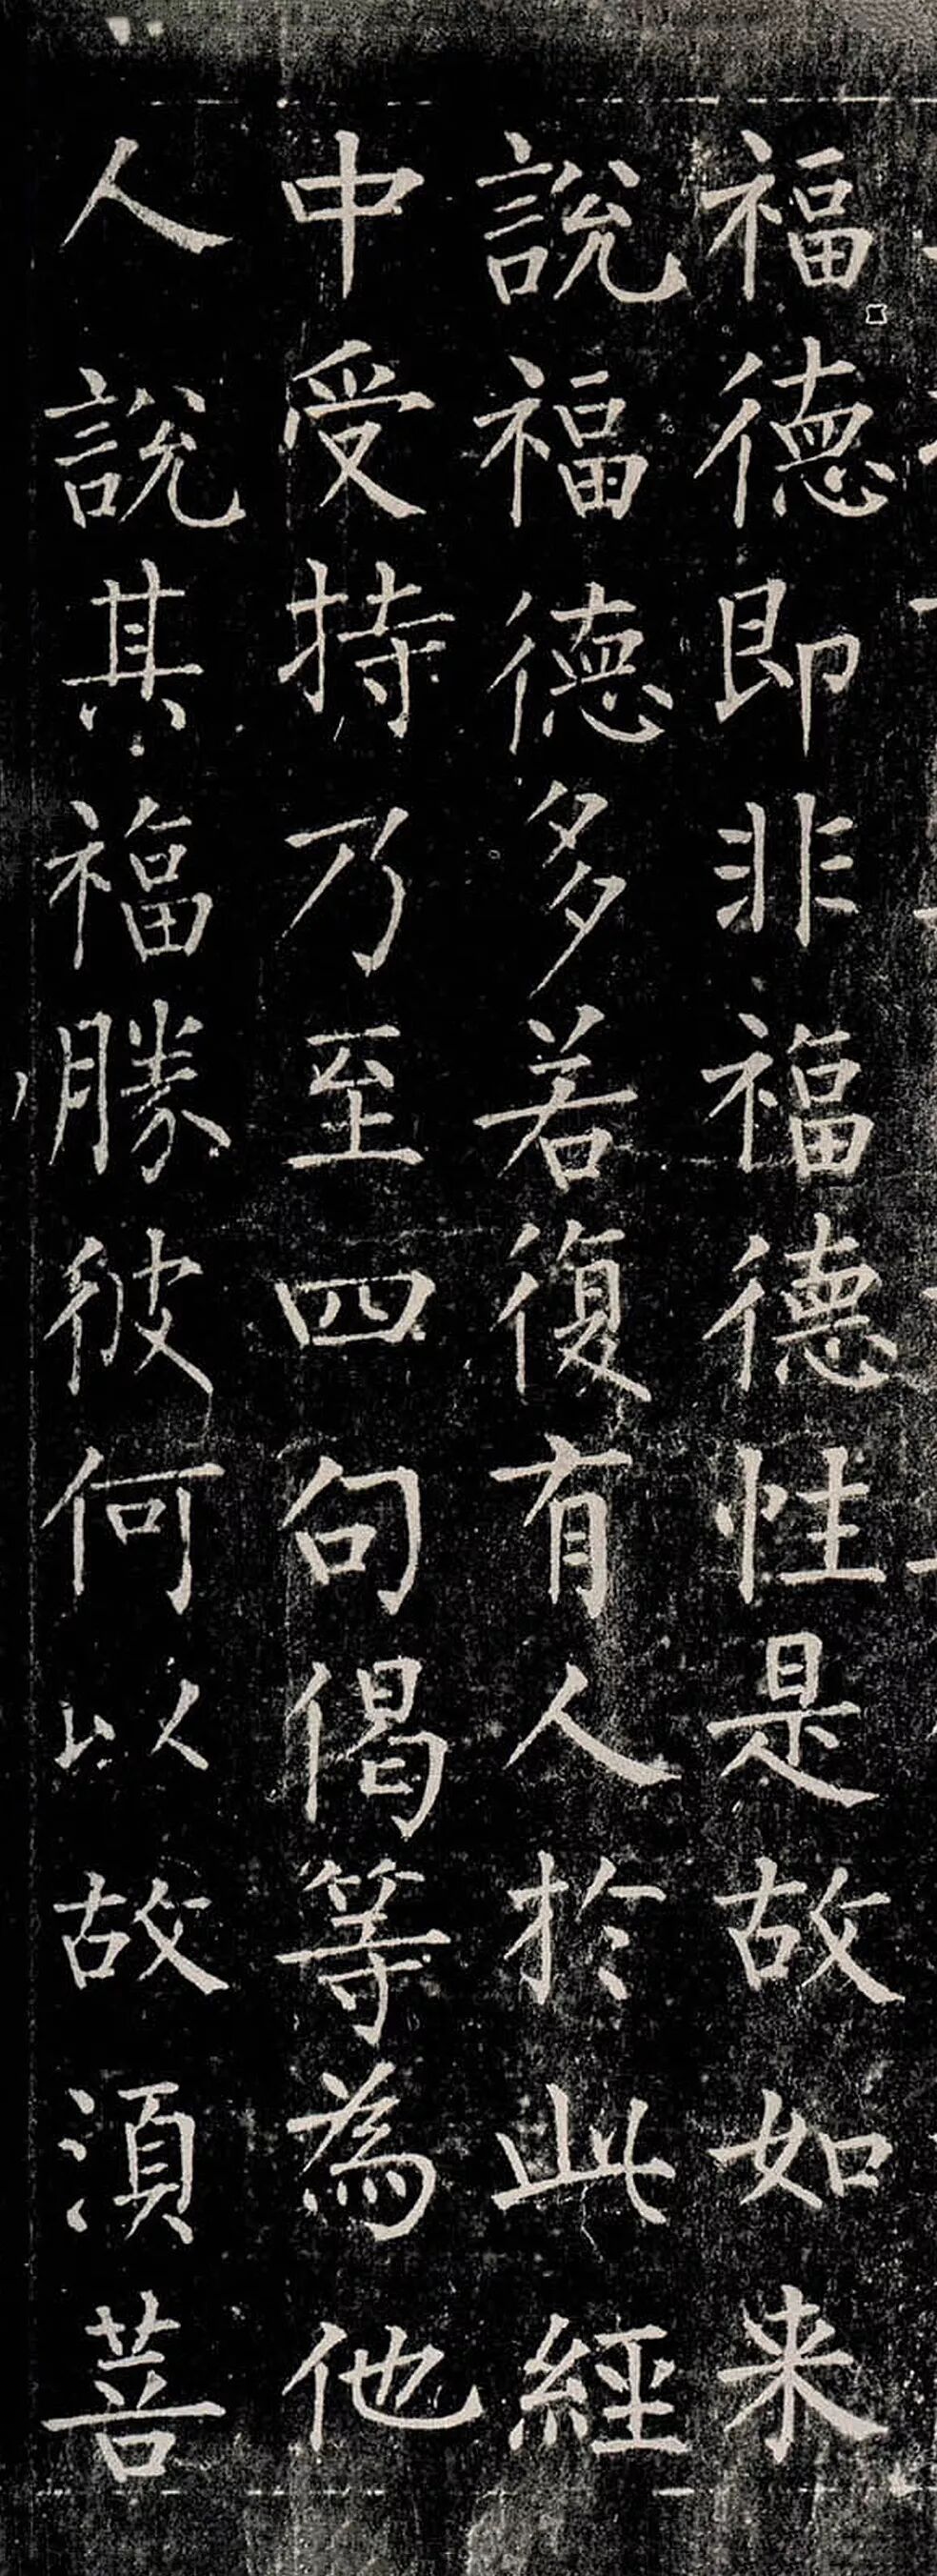 福德即非福德性是故如来
說福德多若復有人於此經
中受持乃至四句偈等為他
人說其福勝彼何以故須菩